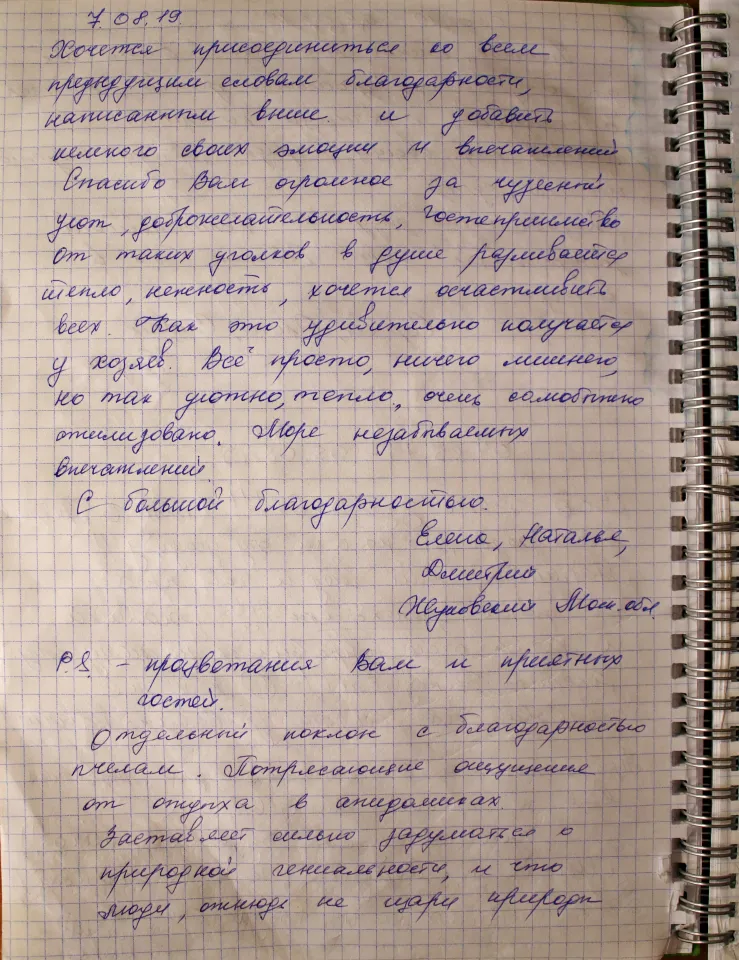 7.08.19.
Хочется присоединиться ко всем
предыдущим словам благодарности,
написанным выше. и добавить
немного своих эмоций и впечатлений
Спасибо Вам огромное за чудесный
уют, доброжелательность, гостеприимство
от таких уголков в душе разливается
тепло, нежность, хочется осчастливить
всех. Как это удивительно получается
у хозяев. Всё просто, ничего лишнего,
но так уютно, тепло, очень самобытно
стилизовано. Море незабываемых
впечатлений.
С большой благодарностью.
Елена, Наталья,
Дмитрий
Жуковский Моск. обл.
P.S – процветания Вам и приятных
гостей.
Отдельный поклон с благодарностью
пчелам. Потрясающие ощущения
от отдыха в апидомиках.
Заставляет сильно задуматься о
природной гениальности, и что
люди, отнюдь не цари природы